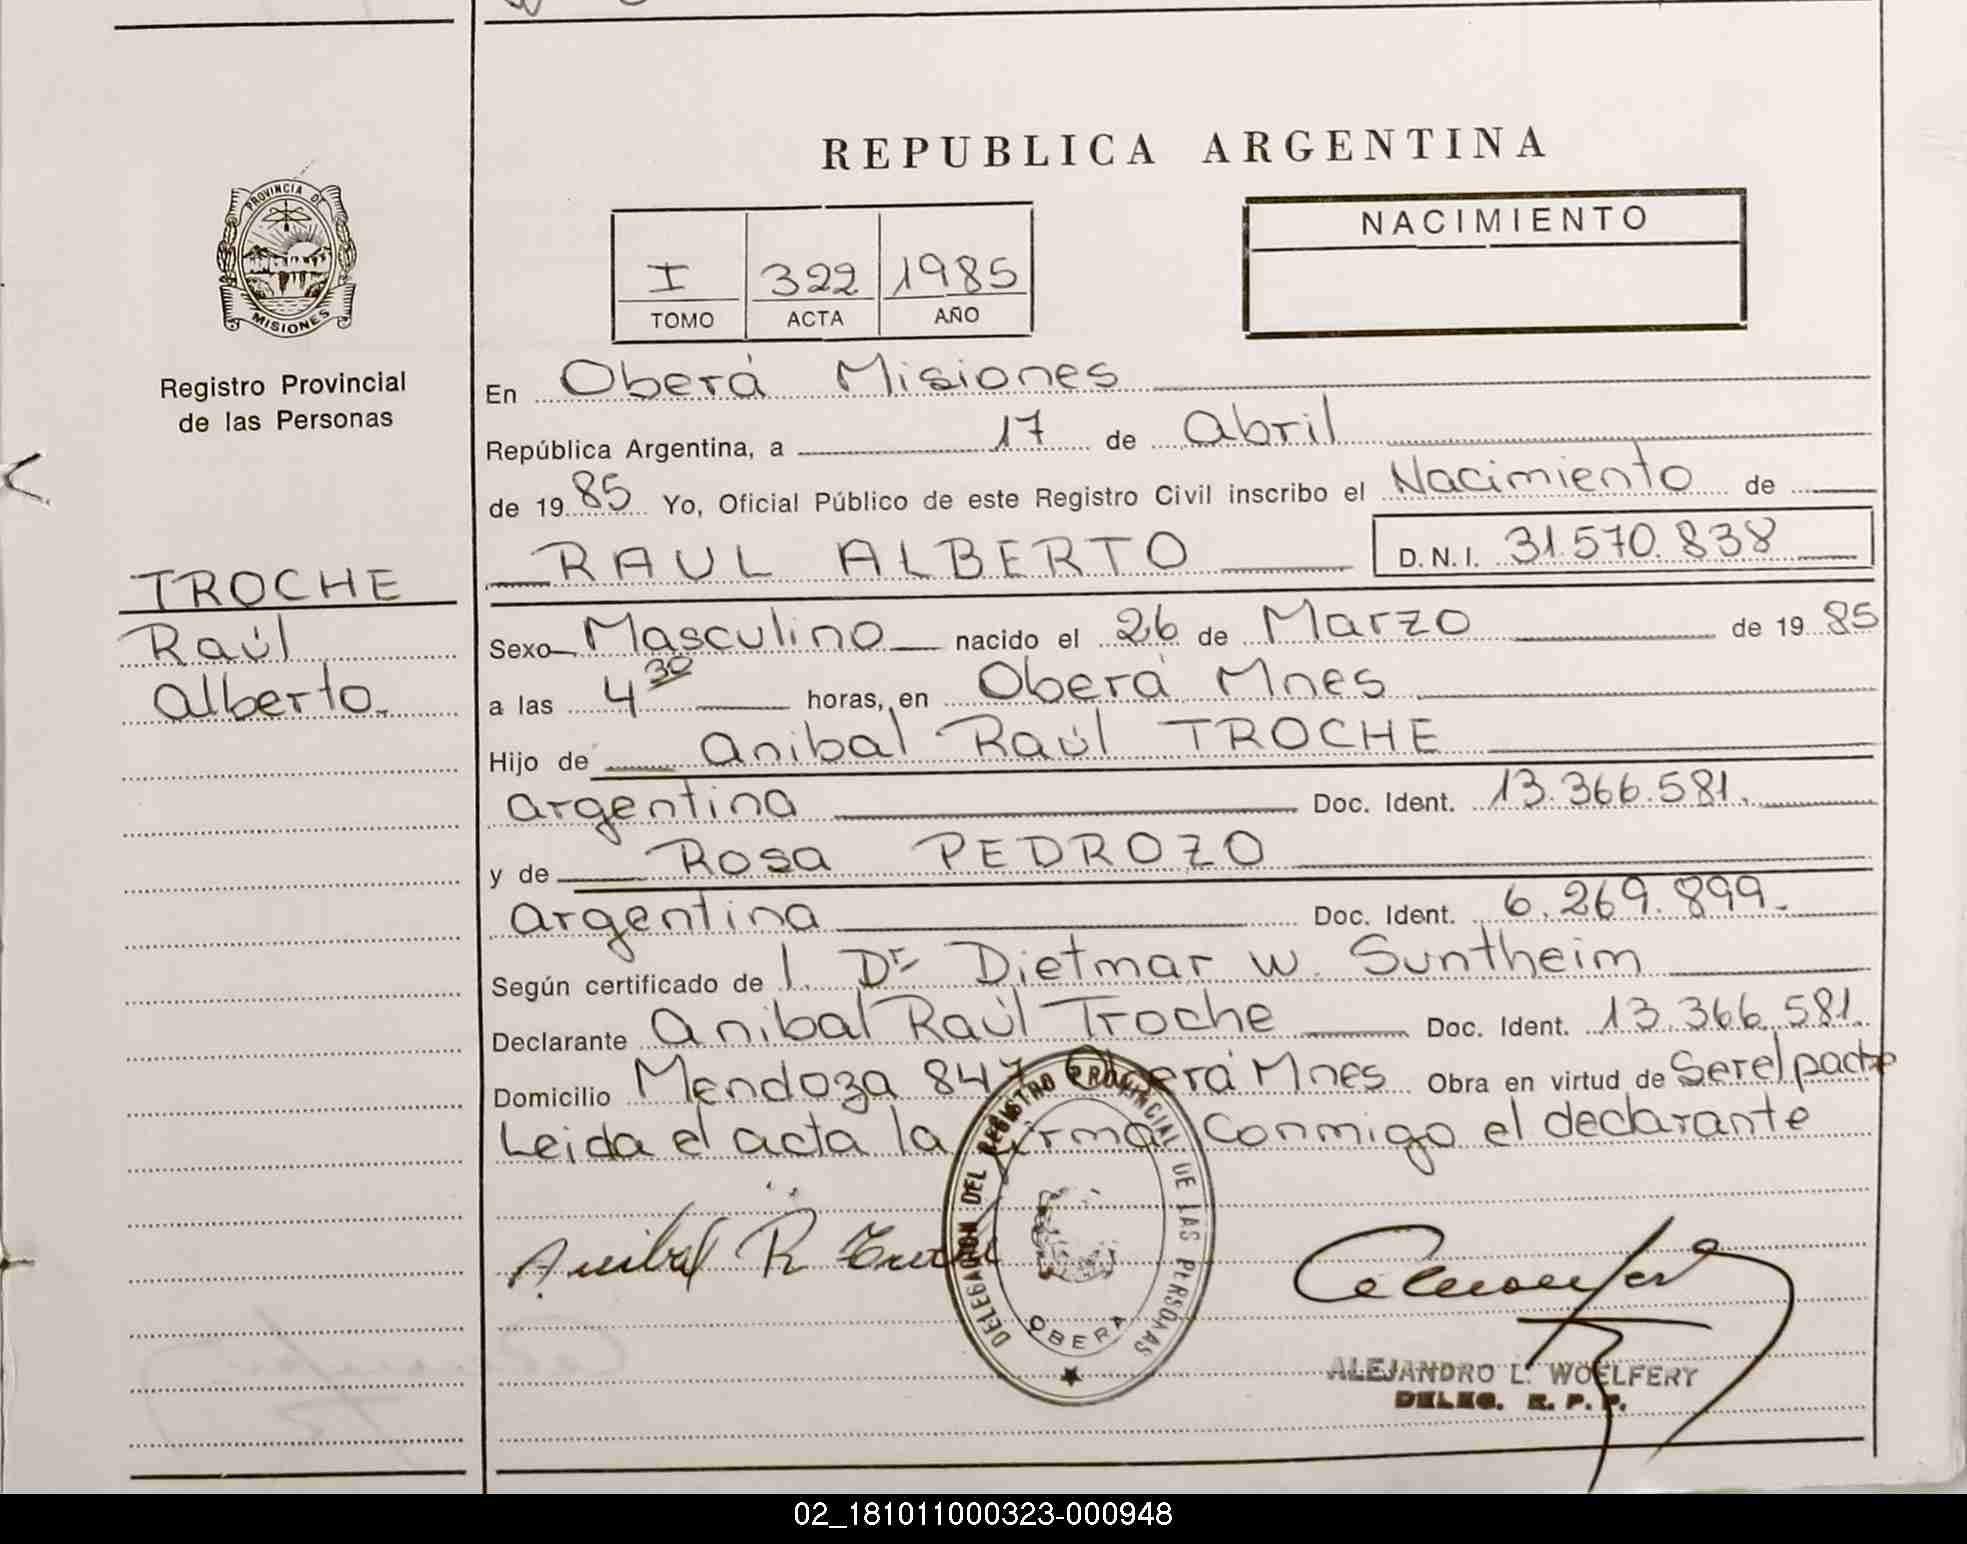 REPUBLICA ARGENTINA
PROVINCIA DE
MISIONES
Registro Provincial
de las Personas
TROCHE
Raúl
Alberto.
I 322 1985
TOMO ACTA AÑO
NACIMIENTO
En Oberá Misiones
República Argentina, a 17 de Abril
de 1985 Yo, Oficial Público de este Registro Civil inscribo el Nacimiento de
RAUL ALBERTO D.N.I. 31.570.838
Sexo Masculino nacido el 26 de Marzo de 1985
a las 4 30 horas, en Oberá Mnes
Hijo de Anibal Raúl TROCHE
argentina Doc. Ident. 13.366.581.
y de Rosa PEDROZO
argentina Doc. Ident. 6.269.899.
Según certificado de l. Dr Dietmar W. Suntheim
Declarante Anibal Raúl Troche Doc. Ident. 13.366.581.
Domicilio Mendoza 847 Oberá Mnes Obra en virtud de Ser el padre
Leida el acta la firma conmigo el declarante
Anibal R Troche
DELEGACION DEL REGISTRO PROVINCIAL DE LAS PERSONAS
OBERA
ALEJANDRO L. WOELFERT
DELEG. R. P. P.
02_181011000323-000948